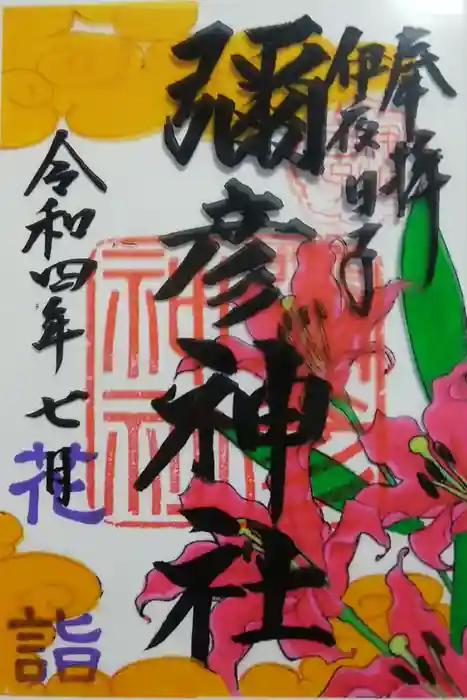 奉拝
伊夜日子
彌彦神社
令和四年七月
花
詣